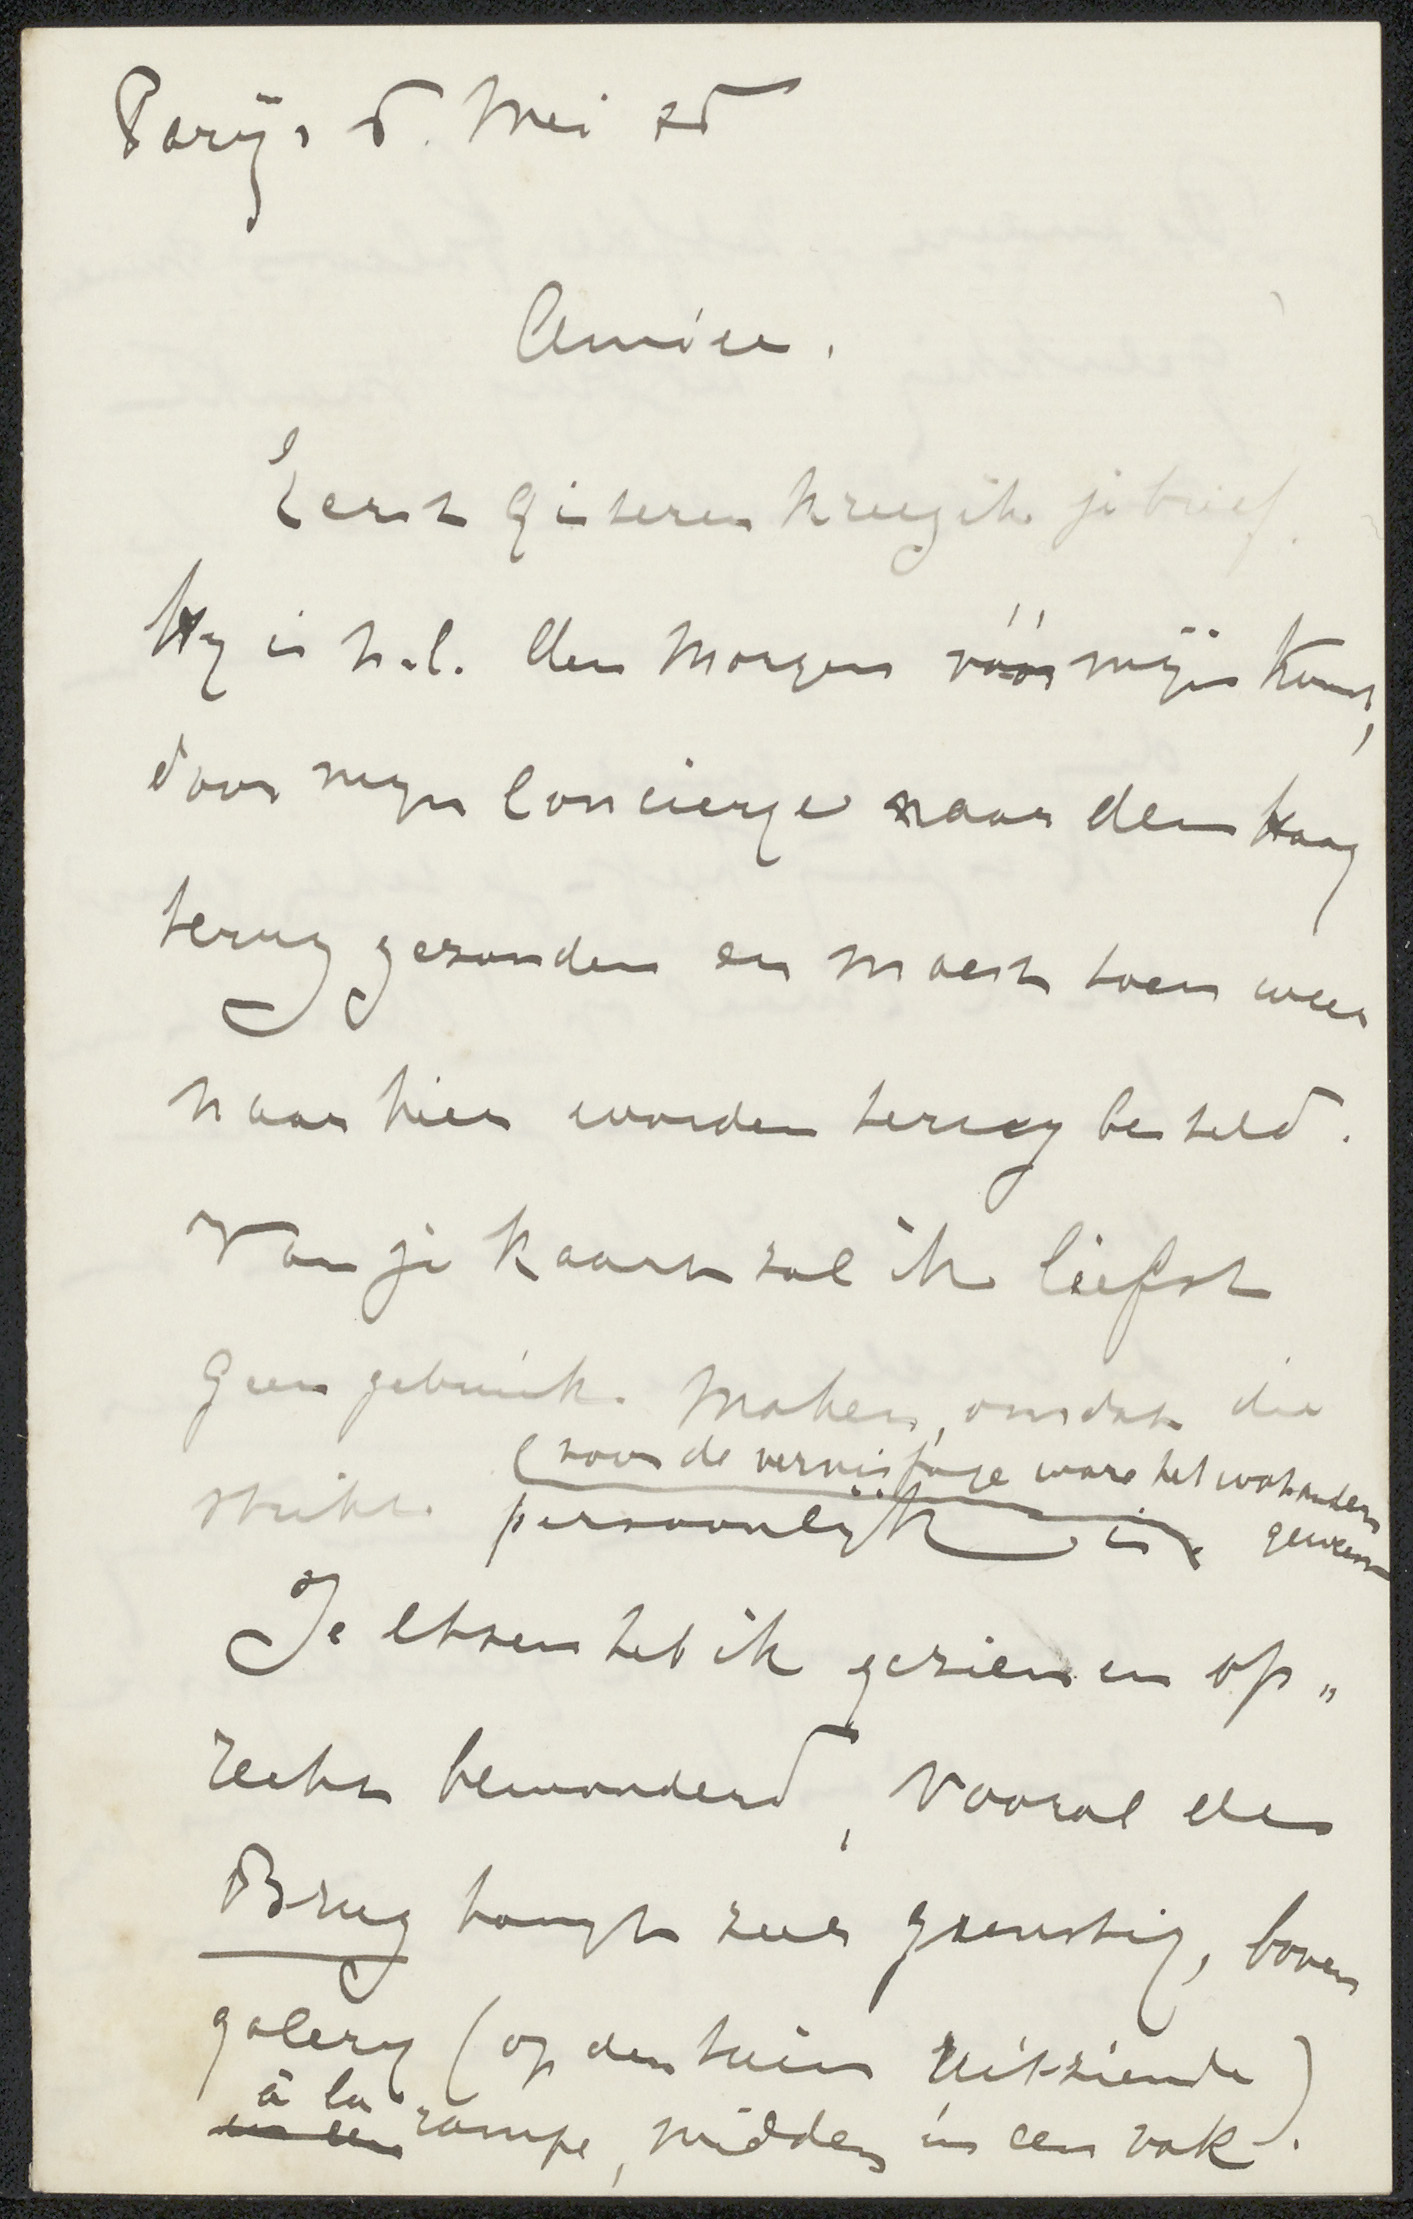 Parijs 8. Mei 88
Amice.
Eerst gisteren kreeg ik je brief.
Hy is n.l. den morgen vóór mijn komst,
door mijn concierge naar den Haag
terug gezonden en moest toen weer
naar hier worden terug besteld.
Van je kaart zal ik liefst
geen gebruik maken, omdat die
(voor de vernissage ware het wat anders
geweest
strikt persoonlijk is.
Je etsen heb ik gezien en op„
recht bewonderd, vooral de
Brug hangt zeer gunstig, boven
galery (op den tuin uitziende)
à la
in een rampe, midden in een vak.